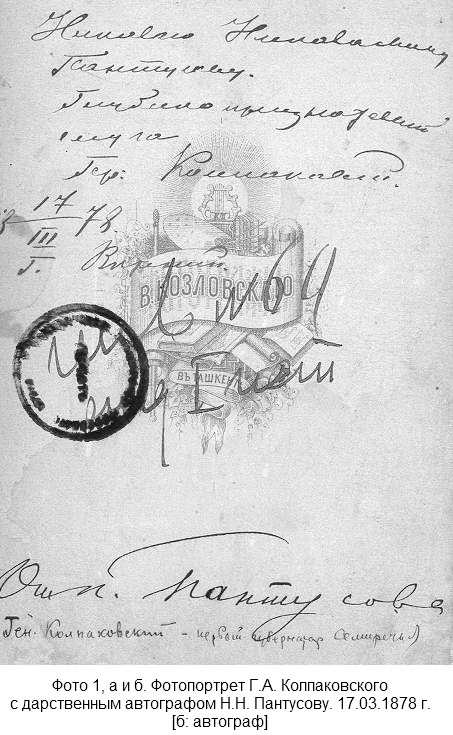 Николаю Николаевичу
Пантусову.
Глубоко признательный
слуга
Гер: Колпаковский.
17
III 78.
г. Верный.
В. КОЗЛОВСКАГО
№ 64
ВЪ ТАШКЕНТѢ
Отъ Н. Пантусова
Ген. Колпаковский - первый губернатор Семиречья
Фото 1, а и б. Фотопортрет Г.А. Колпаковского
с дарственным автографом Н.Н. Пантусову. 17.03.1878 г.
[б: автограф]